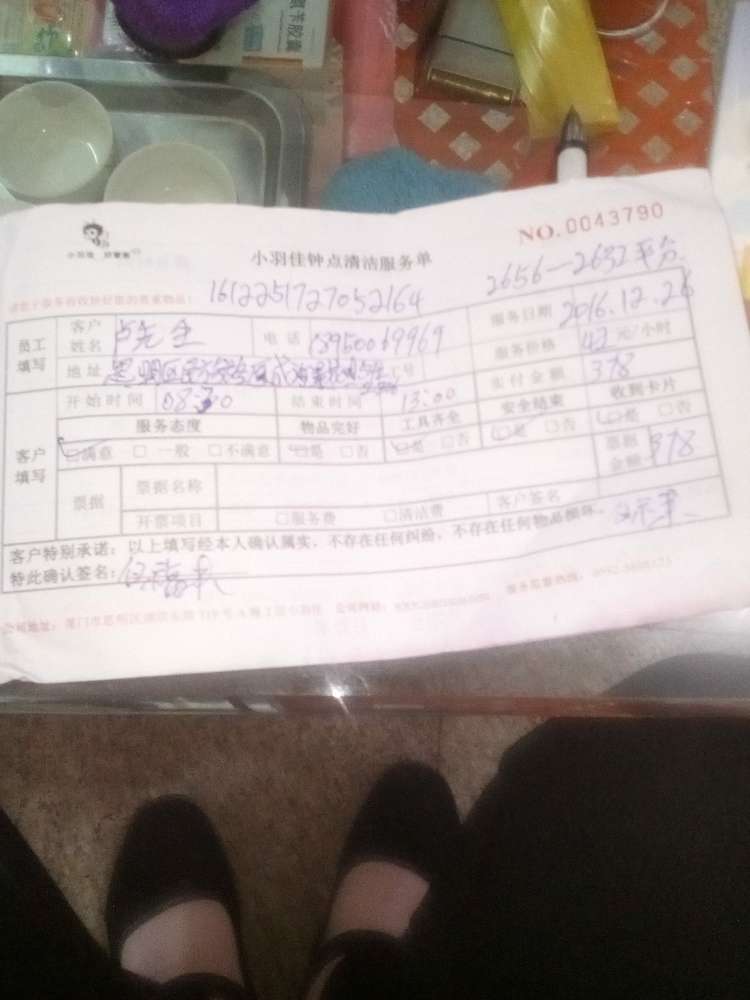 NO.0043790
小羽佳钟点清洁服务单
2656—2632平分
1612251727052164
员工填写 客户姓名 卢先生 电话 18950069969 服务日期 2016.12.26
地址 思明区 号 服务价格 42元/小时
开始时间 08:30 结束时间 13:00 实付金额 378
服务态度 物品完好 工具齐全 安全结束 收到卡片
客户填写 满意 □ 一般 □ 不满意 是 □否 是 □否 是 □否 是 □否
票据 票据名称 票据金额 378
开票项目 □服务费 □清洁费 客户签名
客户特别承诺：以上填写经本人确认属实，不存在任何纠纷，不存在任何物品损坏。
特此确认签名：
公司地址：厦门市思明区 公司网站： 服务监督热线：